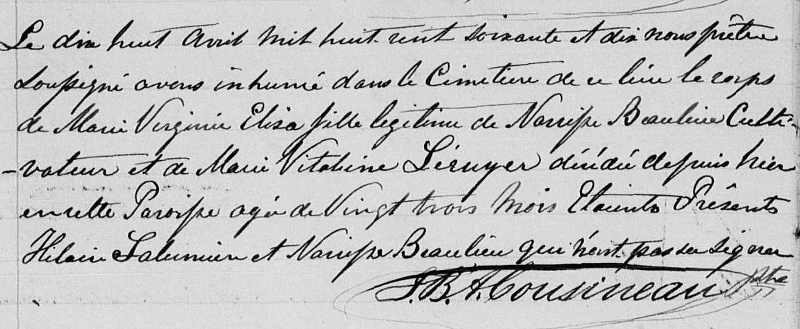 Le dix huit Avril mil huit cent soixante et dix nous prêtre
Soussigné avons inhumé dans le Cimetière de ce lieu le corps
de Marie Virginie Eliza fille legitime de Narcisse Beaulieu Culti-
-vateur et de Marie Vitaline Léruyer décédée depuis hier
en cette Paroisse agée de Vingt trois mois Etaients Présents
Hilaire Salumier et Narcisse Beaulieu qui n'ont pas su signer
J.B.A. Cousineau ptre